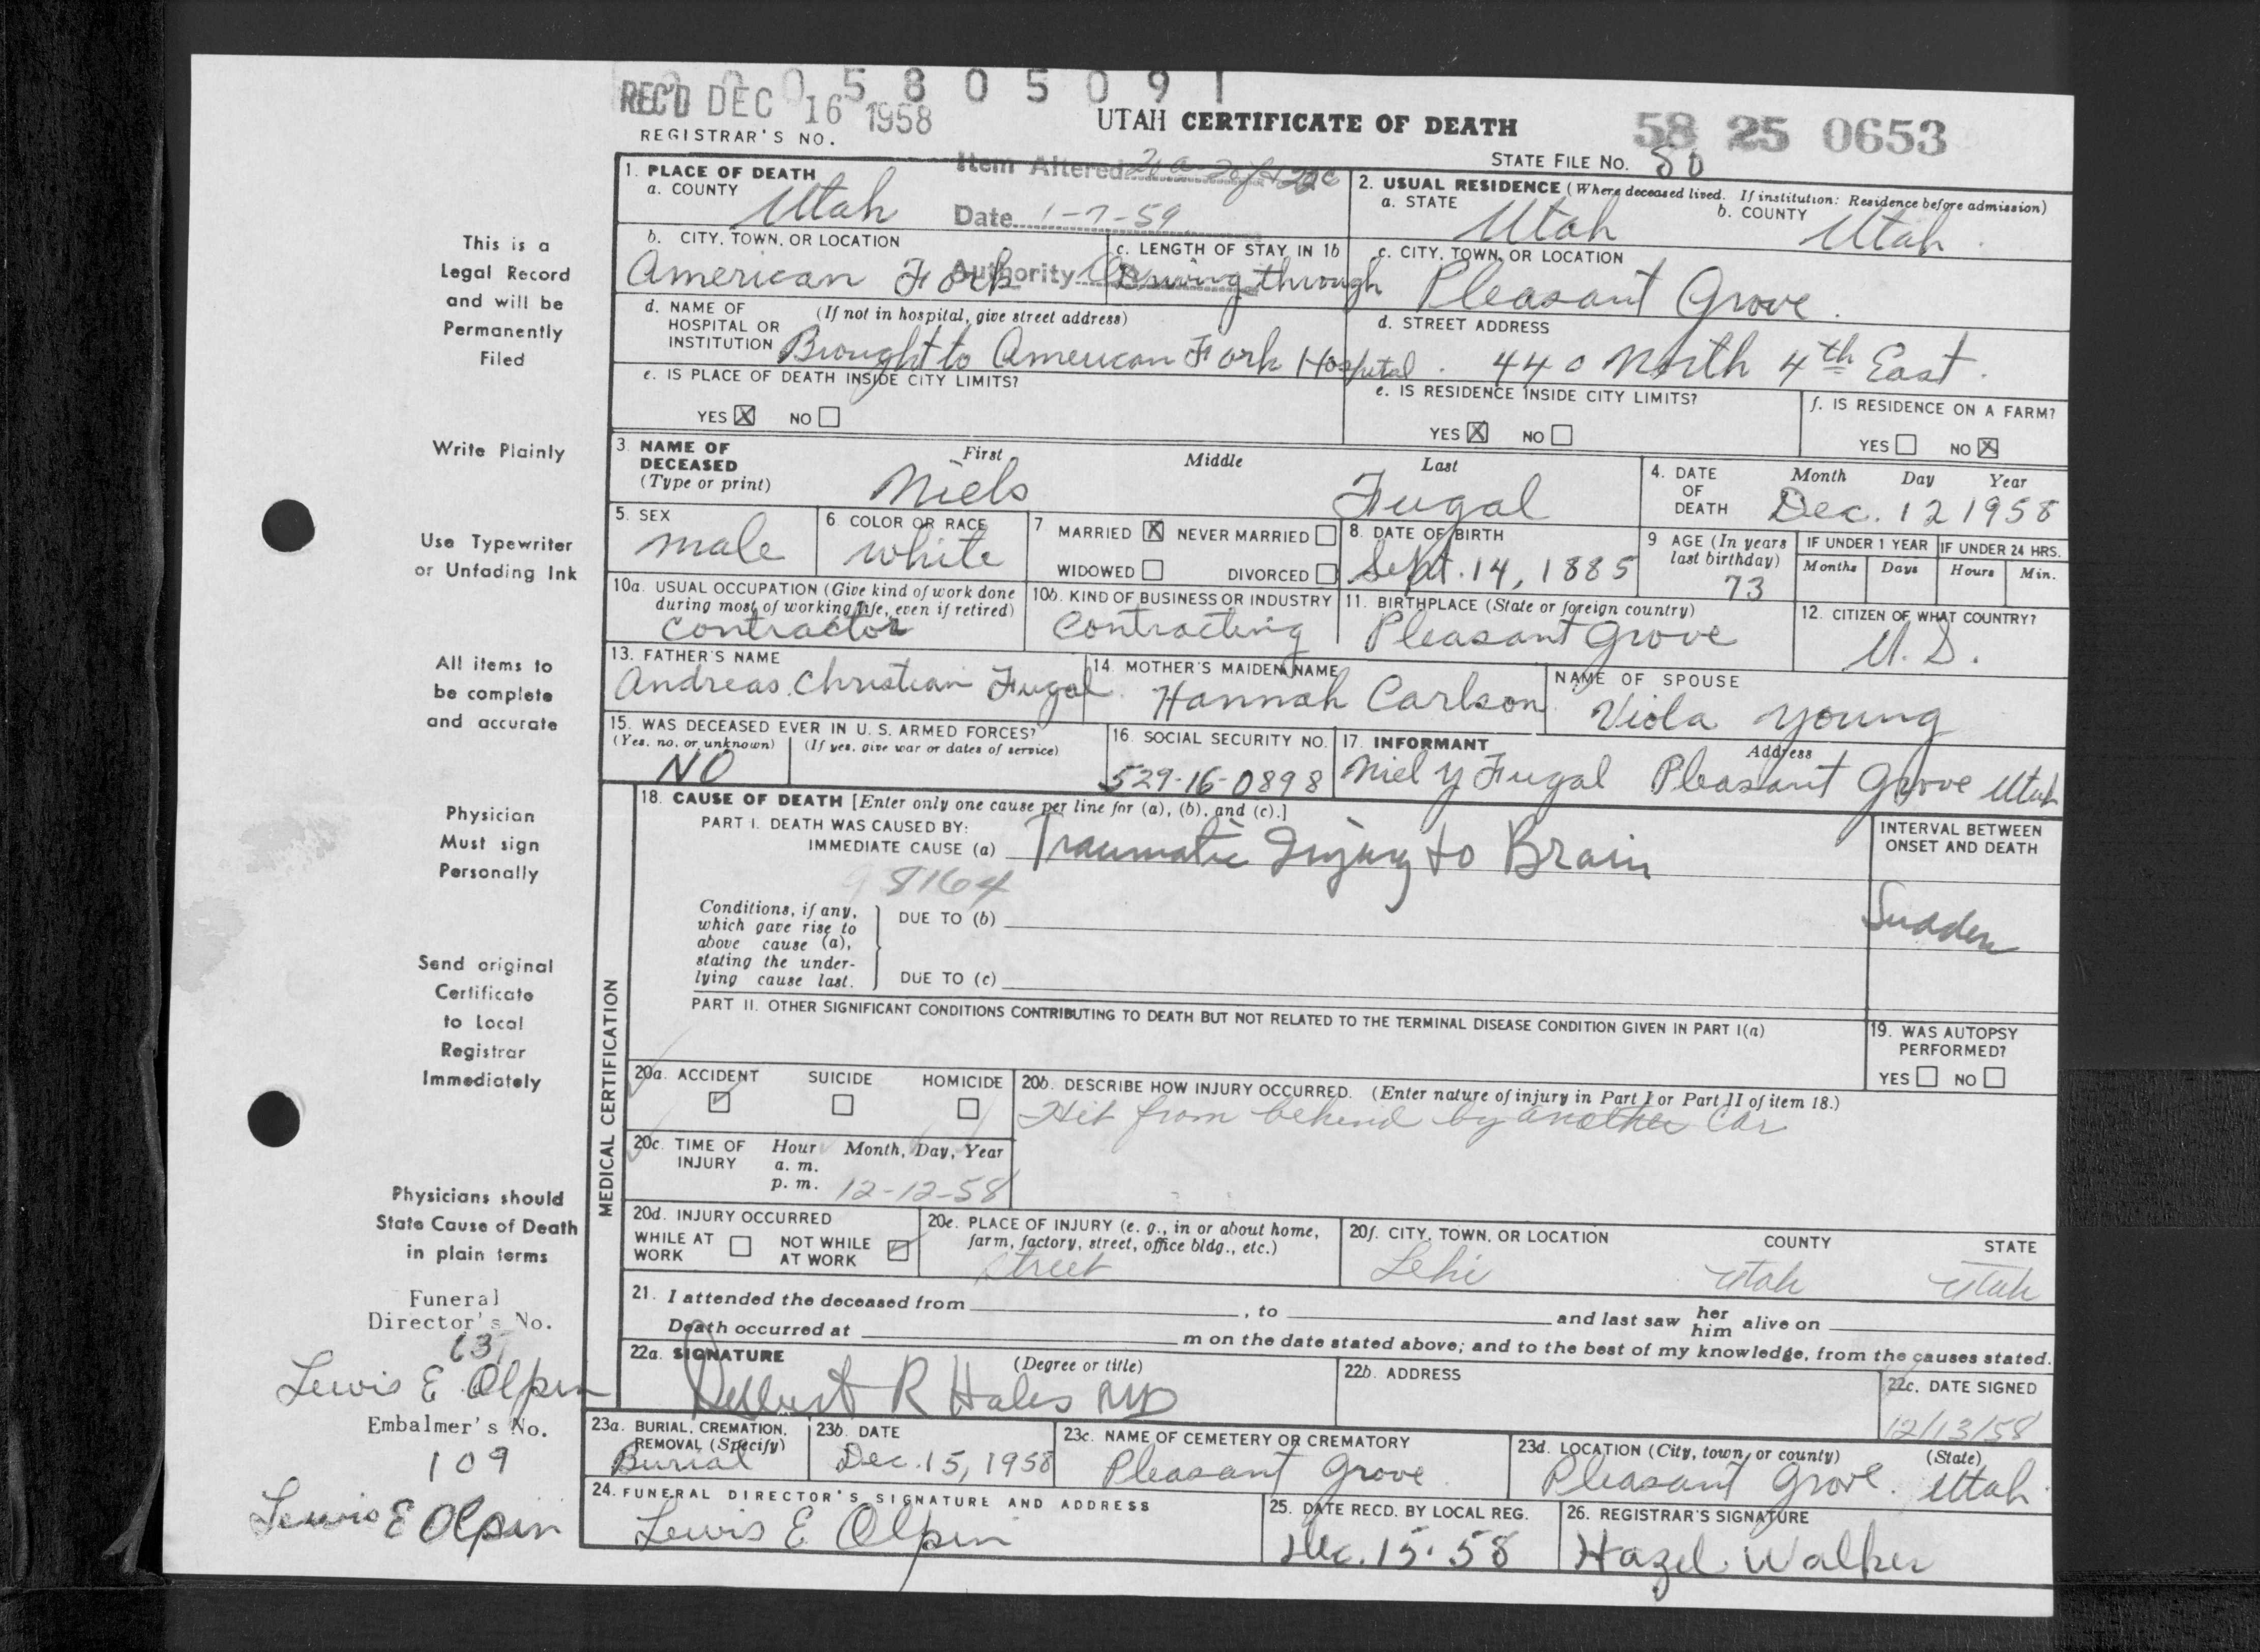 REC'D DEC 16 1958
0 5 8 0 5 0 9 1
REGISTRAR'S NO.
UTAH CERTIFICATE OF DEATH
58 25 0653
STATE FILE NO. 80
Item Altered
Date 1-7-59
Authority
1. PLACE OF DEATH
a. COUNTY
Utah
2. USUAL RESIDENCE (Where deceased lived. If institution: Residence before admission)
a. STATE
Utah
b. COUNTY
Utah
b. CITY, TOWN, OR LOCATION
American Fork
c. LENGTH OF STAY IN 1b
Driving through
c. CITY, TOWN, OR LOCATION
Pleasant Grove
d. NAME OF HOSPITAL OR INSTITUTION
(If not in hospital, give street address)
Brought to American Fork Hospital
d. STREET ADDRESS
440 North 4th East.
e. IS PLACE OF DEATH INSIDE CITY LIMITS?
YES X NO
e. IS RESIDENCE INSIDE CITY LIMITS?
YES X NO
f. IS RESIDENCE ON A FARM?
YES NO X
3. NAME OF DECEASED
(Type or print)
First Middle Last
Niels Fugal
4. DATE OF DEATH
Month Day Year
Dec. 12 1958
5. SEX
male
6. COLOR OR RACE
white
7. MARRIED X NEVER MARRIED
WIDOWED DIVORCED
8. DATE OF BIRTH
Sept. 14, 1885
9 AGE (In years last birthday)
73
IF UNDER 1 YEAR
Months Days
IF UNDER 24 HRS.
Hours Min.
10a. USUAL OCCUPATION (Give kind of work done during most of working life, even if retired)
contractor
10b. KIND OF BUSINESS OR INDUSTRY
Contracting
11. BIRTHPLACE (State or foreign country)
Pleasant Grove
12. CITIZEN OF WHAT COUNTRY?
U.S.
13. FATHER'S NAME
Andreas Christian Fugal
14. MOTHER'S MAIDEN NAME
Hannah Carlson
NAME OF SPOUSE
Viola Young
15. WAS DECEASED EVER IN U. S. ARMED FORCES?
(Yes, no, or unknown) (If yes, give war or dates of service)
NO
16. SOCIAL SECURITY NO.
529-16-0898
17. INFORMANT Address
Niel Y Fugal Pleasant Grove Utah
MEDICAL CERTIFICATION
18. CAUSE OF DEATH [Enter only one cause per line for (a), (b), and (c).]
PART I. DEATH WAS CAUSED BY:
IMMEDIATE CAUSE (a) Traumatic Injury to Brain
INTERVAL BETWEEN ONSET AND DEATH
Sudden
98164
Conditions, if any, which gave rise to above cause (a), stating the underlying cause last.
DUE TO (b)
DUE TO (c)
PART II. OTHER SIGNIFICANT CONDITIONS CONTRIBUTING TO DEATH BUT NOT RELATED TO THE TERMINAL DISEASE CONDITION GIVEN IN PART I(a)
19. WAS AUTOPSY PERFORMED?
YES NO
20a. ACCIDENT SUICIDE HOMICIDE
20b. DESCRIBE HOW INJURY OCCURRED. (Enter nature of injury in Part I or Part II of item 18.)
Hit from behind by another Car
20c. TIME OF INJURY
Hour Month, Day, Year
a. m.
p. m. 12-12-58
20d. INJURY OCCURRED
WHILE AT WORK NOT WHILE AT WORK
20e. PLACE OF INJURY (e. g., in or about home, farm, factory, street, office bldg., etc.)
street
20f. CITY, TOWN, OR LOCATION COUNTY STATE
Lehi Utah Utah
21. I attended the deceased from , to and last saw her him alive on
Death occurred at m on the date stated above; and to the best of my knowledge, from the causes stated.
22a. SIGNATURE (Degree or title)
Delbert R Hales MD
22b. ADDRESS
22c. DATE SIGNED
12/13/58
23a. BURIAL, CREMATION, REMOVAL (Specify)
Burial
23b. DATE
Dec. 15, 1958
23c. NAME OF CEMETERY OR CREMATORY
Pleasant Grove
23d. LOCATION (City, town, or county) (State)
Pleasant Grove. Utah
24. FUNERAL DIRECTOR'S SIGNATURE AND ADDRESS
Lewis E Olpin
25. DATE RECD. BY LOCAL REG.
Dec. 15. 58
26. REGISTRAR'S SIGNATURE
Hazel Walker
This is a
Legal Record
and will be
Permanently
Filed
Write Plainly
Use Typewriter
or Unfading Ink
All items to
be complete
and accurate
Physician
Must sign
Personally
Send original
Certificate
to Local
Registrar
Immediately
Physicians should
State Cause of Death
in plain terms
Funeral
Director's No.
Lewis E Olpin
Embalmer's No.
109
Lewis E Olpin